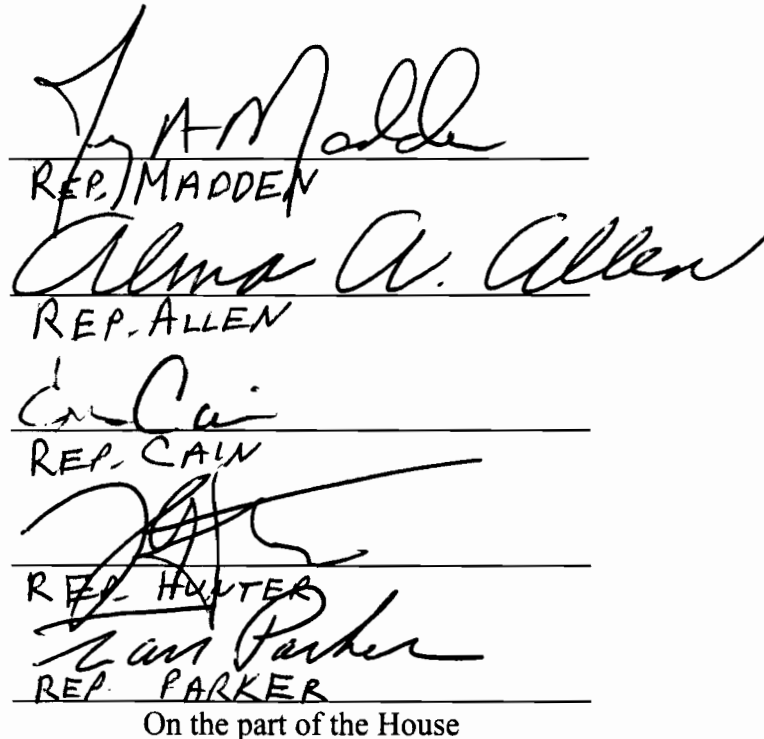 A Madden
REP. MADDEN
Alma A. Allen
REP. ALLEN
Cain
REP. CAIN
REP. HUNTER
Parker
REP. PARKER
On the part of the House